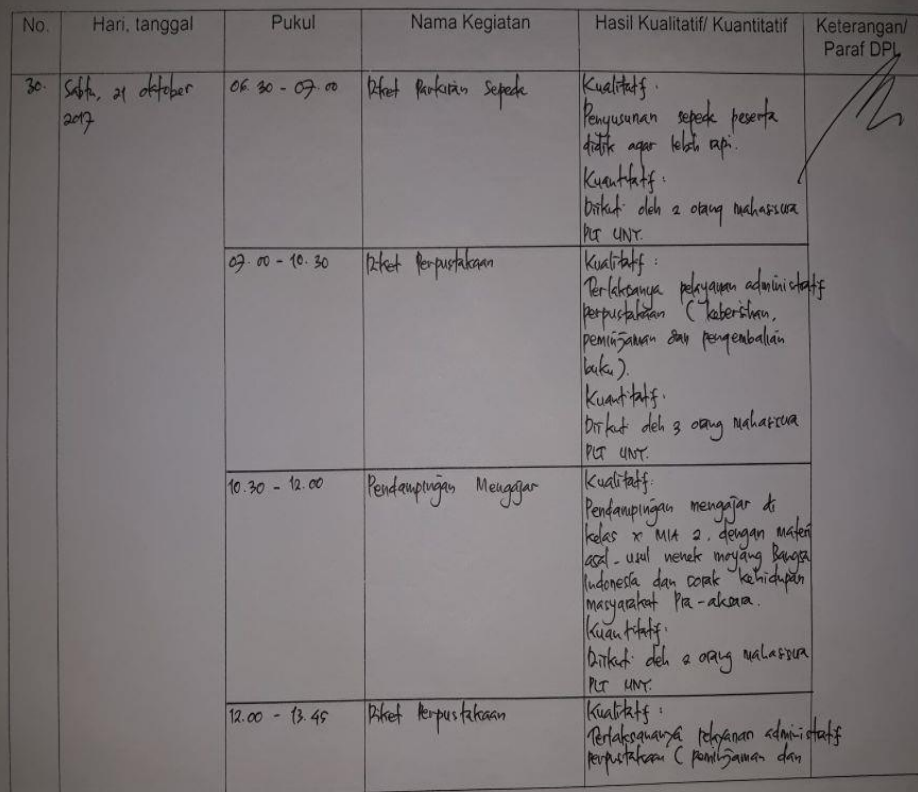 No. Hari, tanggal Pukul Nama Kegiatan Hasil Kualitatif/ Kuantitatif Keterangan/
Paraf DPL
30. Sabtu, 21 oktober 06.30 - 07.00 Piket Parkiran Sepeda Kualitatif :
2017 Penyusunan sepeda peserta
didik agar lebih rapi.
Kuantitatif :
Diikuti oleh 2 orang mahasiswa
PLT UNY.
07.00 - 10.30 Piket Perpustakaan Kualitatif :
Terlaksanya pelayanan administratif
perpustakaan ( kebersihan,
peminjaman dan pengembalian
buku ).
Kuantitatif :
Diikuti oleh 3 orang mahasiswa
PLT UNY.
10.30 - 12.00 Pendampingan Mengajar Kualitatif :
Pendampingan mengajar di
kelas X MIA 2, dengan materi
asal-usul nenek moyang Bangsa
Indonesia dan corak kehidupan
masyarakat Pra-aksara.
Kuantitatif :
Diikuti oleh 2 orang mahasiswa
PLT UNY.
12.00 - 13.45 Piket Perpustakaan Kualitatif :
Terlaksananya pelayanan administratif
perpustakaan ( peminjaman dan